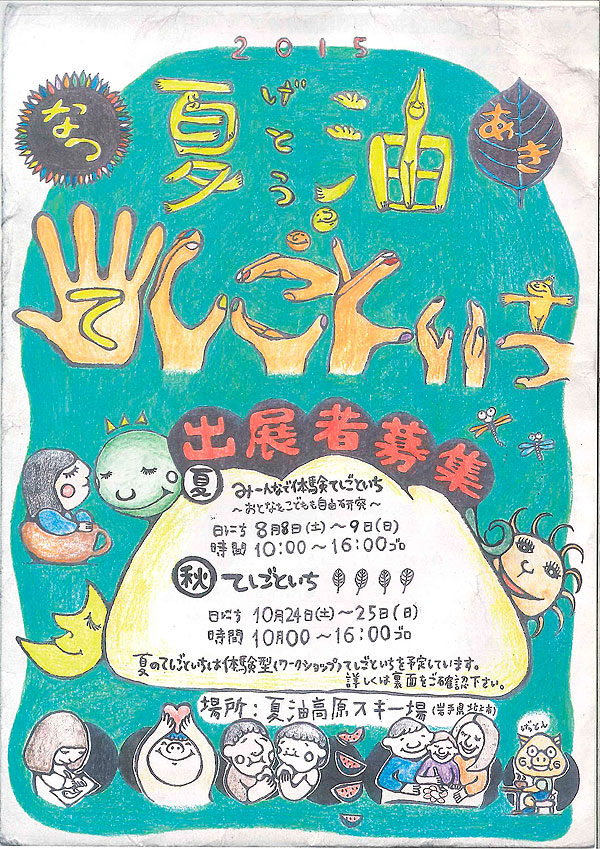 2015
なつ
夏油
げとう
あき
てしごといち
出展者募集
夏 みーんなで体験てしごといち
～おとなもこどもも自由研究～
日にち 8月8日(土)～9日(日)
時間 10:00～16:00ゴロ
秋 てしごといち
日にち 10月24日(土)～25日(日)
時間 10月00～16:00ゴロ
夏のてしごといちは体験型(ワークショップ)てしごといちを予定しています。
詳しくは裏面をご確認下さい。
場所:夏油高原スキー場(岩手県北上市)
げっとん